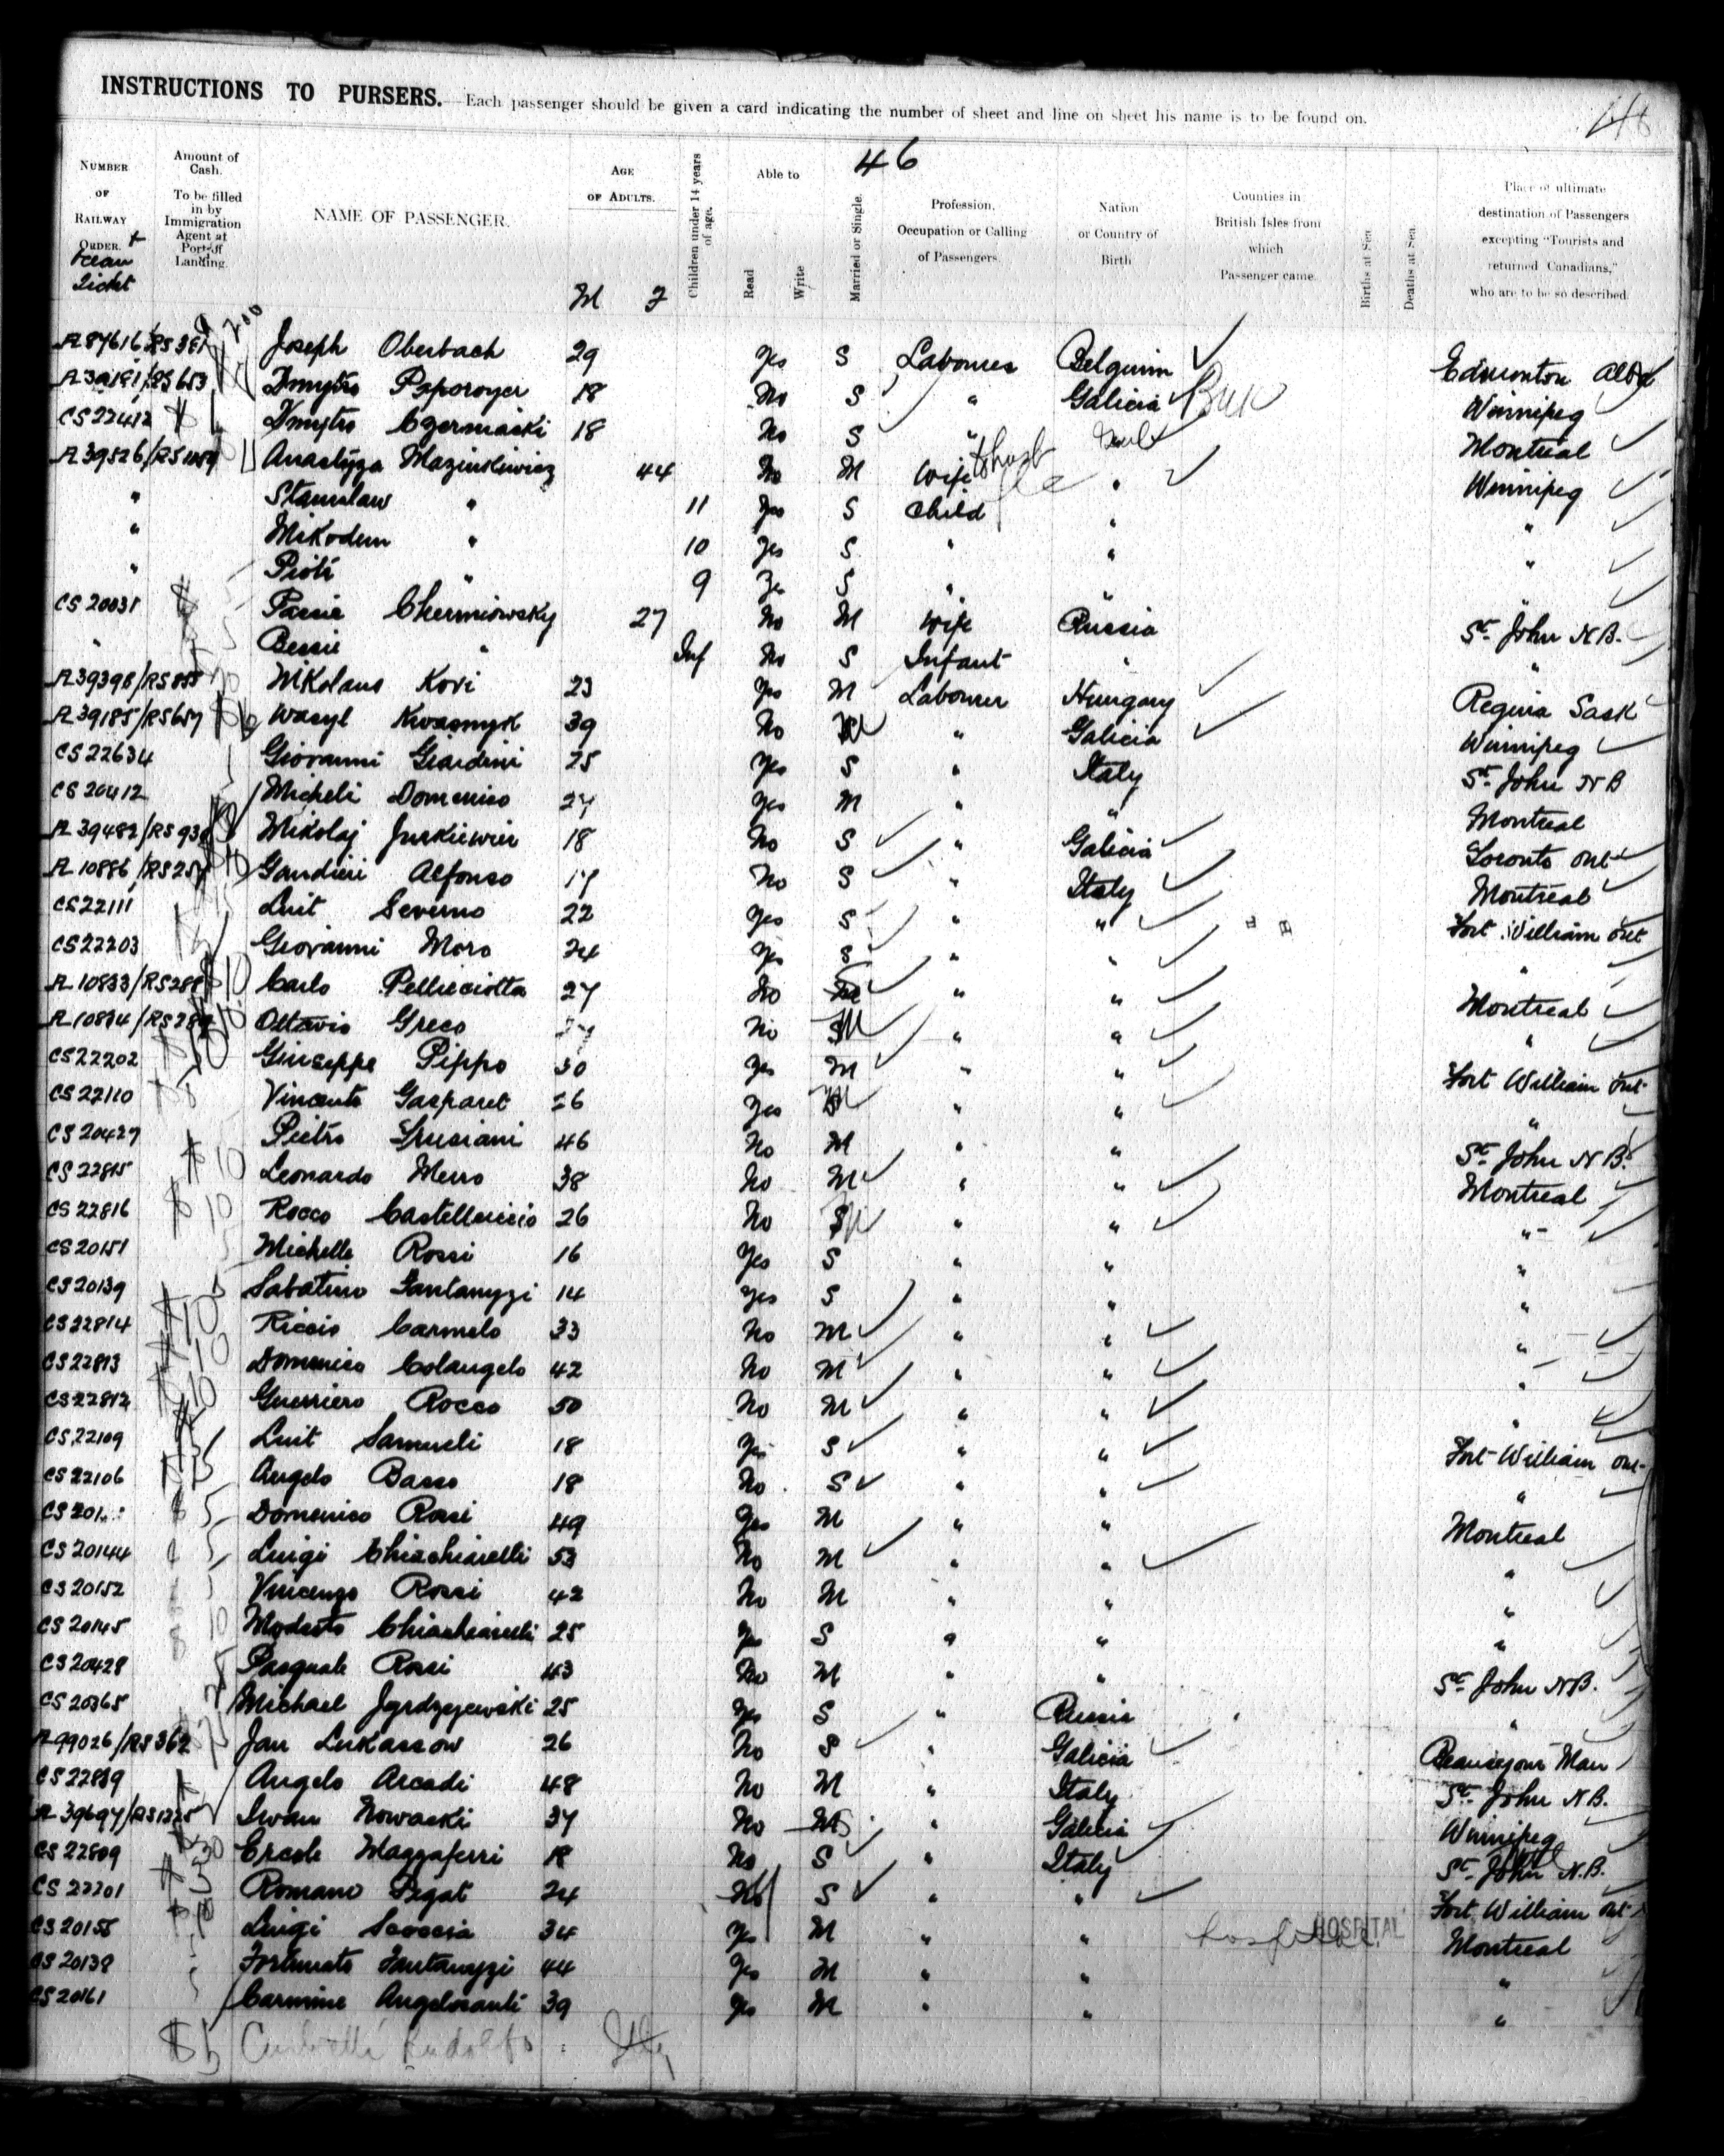 INSTRUCTIONS TO PURSERS.—Each passenger should be given a card indicating the number of sheet and line on sheet his name is to be found on.
46
NUMBER OF RAILWAY ORDER. + Ocean Ticket
Amount of Cash. To be filled in by Immigration Agent at Port of Landing.
NAME OF PASSENGER.
AGE OF ADULTS. M F
Children under 14 years of age.
Able to Read Write
Married or Single.
Profession, Occupation or Calling of Passengers.
Nation or Country of Birth
Counties in British Isles from which Passenger came.
Births at Sea.
Deaths at Sea.
Place of ultimate destination of Passengers excepting "Tourists and returned Canadians," who are to be so described.
A 87616 Joseph Oberbach 29 Yes S Labourer Belgium Edmonton Alba
A 39181/RS653 Dmytro Paporoyer 18 No S " Galicia Buk Winnipeg
CS 22412 Dmytro Czerniaski 18 No S " Montreal
A 39526/RS1054 Anastyza Mazinkiewicz 44 No M Wife " Winnipeg
" Stanislaw " 11 Yes S Child " "
" Mikodem " 10 Yes S " " "
" Piotr " 9 Ye S " " "
CS 20031 Passie Cherniowsky 27 No M Wife Russia St. John N.B.
" Bessie " Inf No S Infant " "
A 39398/RS855 Nikolaus Kovi 23 Yes M Labourer Hungary Regina Sask
A 39185/RS657 Wasyl Kwasnyk 39 No M " Galicia Winnipeg
CS 22634 Giovanni Giardini 25 Yes S " Italy St. John NB
CS 20412 Micheli Domenico 27 Yes M " " Montreal
A 39482/RS938 Mikolaj Jurkiewier 18 No S " Galicia Toronto Ont
A 10886/RS257 Gaudieri Alfonso 17 No S " Italy Montreal
CS 22111 Luit Severno 22 Yes S " " Fort William Ont
CS 22203 Giovanni Moro 24 Yes S " " "
A 10833/RS288 Carlo Pellicciotta 27 No " " Montreal
A 10834/RS289 Ottavio Greco No M " " "
CS 22202 Giuseppe Pippo 30 Yes M " " Fort William Ont
CS 22110 Vincento Gasparet 26 Yes M " " "
CS 20427 Pietro Trusiani 46 No M " " St. John N.B.
CS 22815 Leonardo Merro 38 No M " " Montreal
CS 22816 Rocco Castelluccio 26 No M " " "
CS 20151 Michelle Rossi 16 Yes S " " "
CS 20139 Sabatino Fantanyzi 14 Yes S " " "
CS 22814 Riccio Carmelo 33 No M " " "
CS 22813 Domenico Colangelo 42 No M " " "
CS 22812 Guerriero Rocco 50 No M " " "
CS 22109 Luit Samueli 18 Yes S " " Fort William Ont
CS 22106 Angelo Basso 18 No S " " "
Domenico Rossi 49 Yes M " " Montreal
CS 20144 Luigi Chiachiarelli 53 No M " " "
CS 20152 Vincenzo Rossi 42 No M " " "
CS 20145 Modesto Chiachiarelli 25 Yes S " " "
CS 20428 Pasquale Rossi 43 No M " " St. John N.B.
CS 20365 Michael Jgrdzyejewski 25 Yes S " Russia "
A 99026/RS362 Jan Lukassow 26 No S " Galicia Beausejour Man
CS 22839 Angelo Arcadi 48 No M " Italy St. John N.B.
A 39697/RS1325 Iwan Nowaski 37 No S " Galicia Winnipeg
CS 22809 Ercole Mazzaferri 18 No S " Italy St. John N.B.
CS 22201 Romano Pegat 24 No S " " Fort William Ont
CS 20155 Luigi Scoccia 34 Yes M " " hospital HOSPITAL Montreal
CS 20138 Fortunato Fantanyzi 44 Yes M " " "
CS 20161 Carmine Angelosanti 39 Yes M " " "
$5 Rudolfo Italy